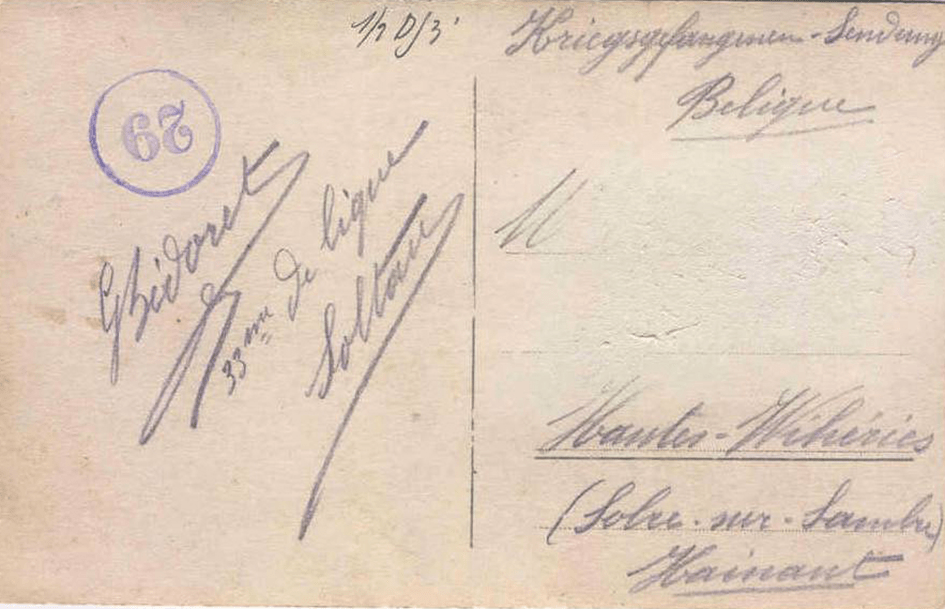 1/2 D/3'
Kriegsgefangenen-Sendung
Beligue
29
M
GBidoret
33me de ligne
Soltau
Hautes-Wihéries
(Solre-sur-Sambre)
Hainaut